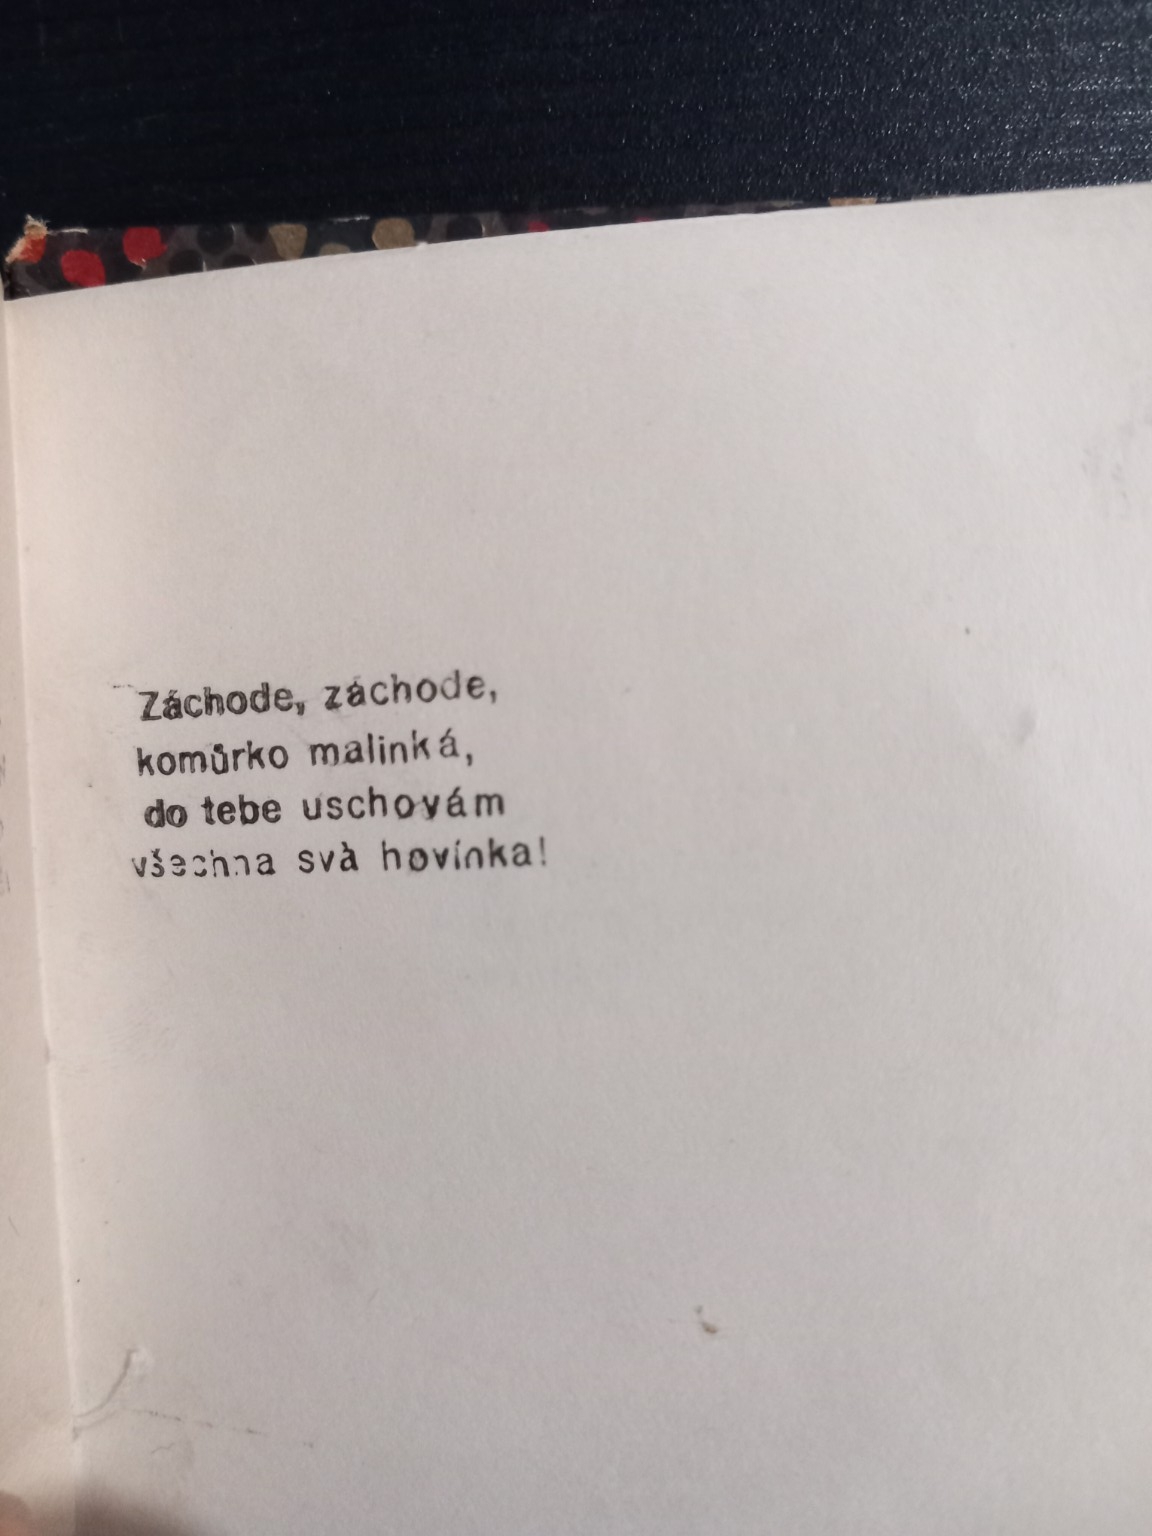 Záchode, záchode,
komůrko malinká,
do tebe uschovám
všechna svà hovínka!